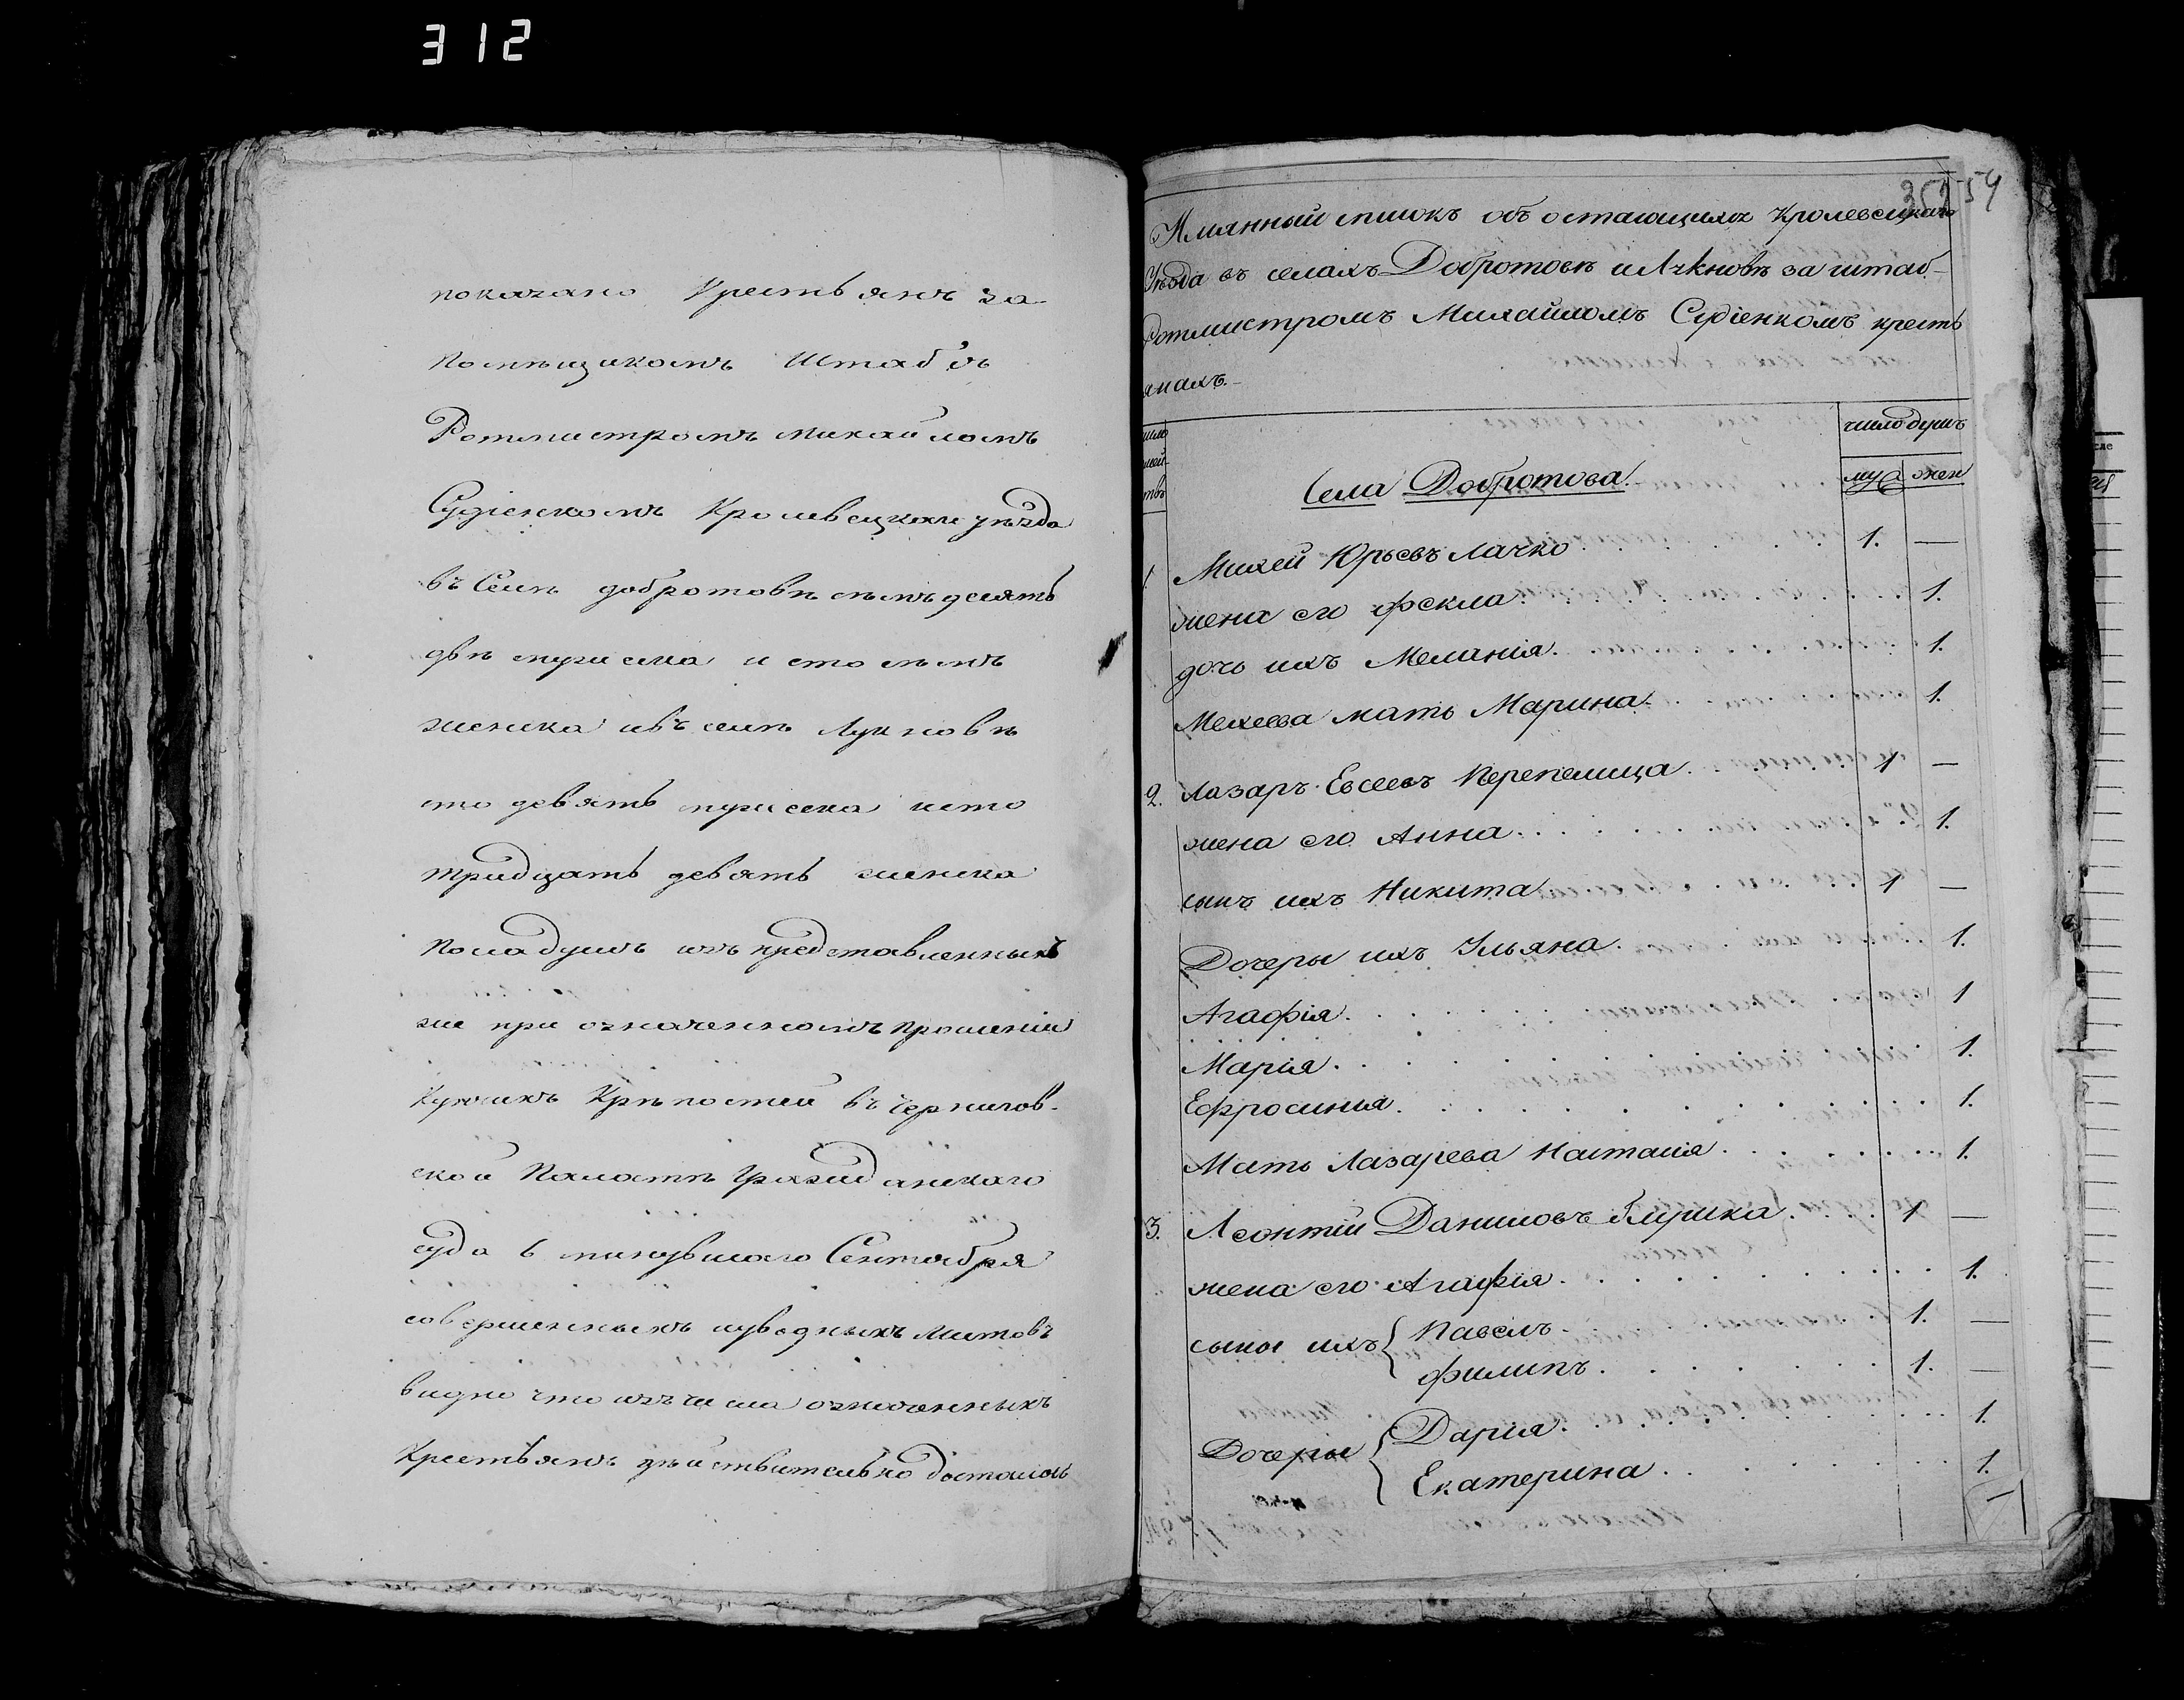 312
показано Крестьянъ за
Помѣщикомъ Штабъ
Ротмистромъ Михайломъ
Судіенкомъ Кролевецкаго уѣзда
въ Селѣ добротовѣ семъдесятъ
двѣ мужеска и сто семъ
женска и въ селѣ Лукновѣ
сто девять мужеска и сто
тридцать девять женска
пола душъ изъ представленныхъ
же при означенномъ прошеніи
Купчихъ Крѣпостей въ Чернигов-
ской Палатѣ Гражданскаго
суда 6 минувшаго Сентября
совершенныхъ и уводныхъ Листовъ
видно что изъ числа означенныхъ
Крестьянъ дѣйствительно досталось
354 54
Имянный списокъ объ остающихся Кролевецкаго
Уѣзда въ селахъ Добротовѣ и Лукновѣ за штаб-
Ротмистромъ Михайломъ Судіенкомъ кресть
янахъ.-
число душъ
Села Добротова.
муж жен
1 Михей Юрьевъ Лачко 1. —
жена его Фекла 1.
дочь ихъ Меланія. 1.
Михеева мать Марина 1.
2. Лазарь Евсеевъ Перепелица. 1 —
жена его Анна. 1.
сынъ ихъ Никита 1 —
Дочеры ихъ Ульяна. 1.
Агафія. 1
Марія. 1.
Ефросинья. 1.
Мать Лазарева Настасія. 1.
3. Леонтій Даниловъ 1 —
жена его Агафія. 1.
сыны ихъ { Павелъ 1. —
Филипъ. 1. —
Дочеры { Дарія. 1.
Екатерина. 1.